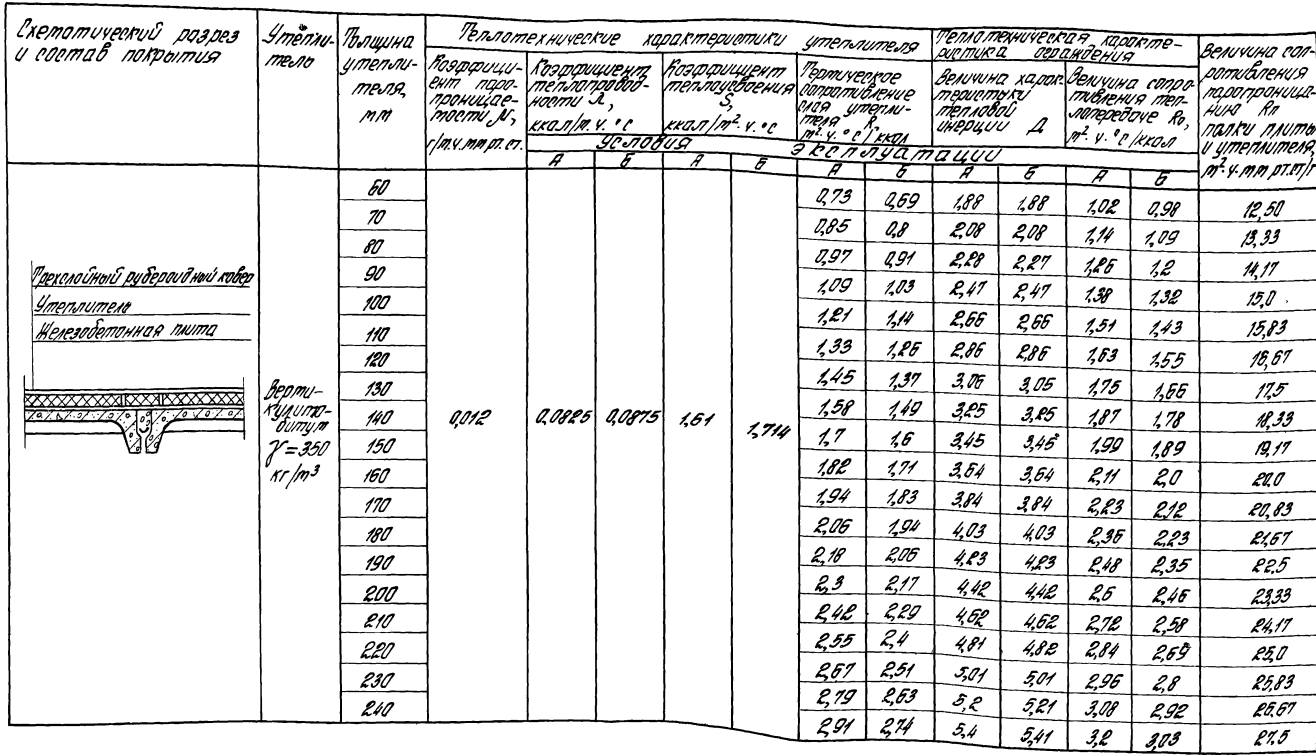 Схематический разрез
и состав покрытия
Утепли-
тель
Толщина
утепли-
теля,
мм
Теплотехнические характеристики утеплителя
Коэффици-
ент паро-
проницае-
мости μ,
г/м.ч.мм рт. ст.
Коэффициент
теплопровод-
ности λ,
ккал/м. ч. °С
Коэффициент
теплоусвоения
S,
ккал/м². ч. °С
Термическое
сопротивление
слоя утепли-
теля R,
м². ч. °С/ккал
Теплотехническая характе-
ристика ограждения
Величина харак-
теристики
тепловой
инерции Д
Величина сопро-
тивления теп-
лопередаче Ro,
м². ч. °С/ккал
Величина соп-
ротивления
паропроница-
нию Rп
полки плиты
и утеплителя,
м². ч. мм рт.ст/г
Условия эксплуатации
А Б А Б А Б А Б А Б
Трехслойный рубероидный ковер
Утеплитель
Железобетонная плита
Верми-
кулито-
битум
γ=350
кг/м³
0,012 0,0825 0,0875 1,61 1,714
60 0,73 0,69 1,88 1,88 1,02 0,98 12,50
70 0,85 0,8 2,08 2,08 1,14 1,09 13,33
80 0,97 0,91 2,28 2,27 1,26 1,2 14,17
90 1,09 1,03 2,47 2,47 1,38 1,32 15,0
100 1,21 1,14 2,66 2,66 1,51 1,43 15,83
110 1,33 1,26 2,86 2,86 1,63 1,55 16,67
120 1,45 1,37 3,06 3,06 1,75 1,66 17,5
130 1,58 1,49 3,25 3,25 1,87 1,78 18,33
140 1,7 1,6 3,45 3,45 1,99 1,89 19,17
150 1,82 1,71 3,64 3,64 2,11 2,0 20,0
160 1,94 1,83 3,84 3,84 2,23 2,12 20,83
170 2,06 1,94 4,03 4,03 2,36 2,23 21,67
180 2,18 2,06 4,23 4,23 2,48 2,35 22,5
190 2,3 2,17 4,42 4,42 2,6 2,46 23,33
200 2,42 2,29 4,62 4,62 2,72 2,58 24,17
210 2,55 2,4 4,81 4,82 2,84 2,69 25,0
220 2,67 2,51 5,01 5,01 2,96 2,8 25,83
230 2,79 2,63 5,2 5,21 3,08 2,92 26,67
240 2,91 2,74 5,4 5,41 3,2 3,03 27,5